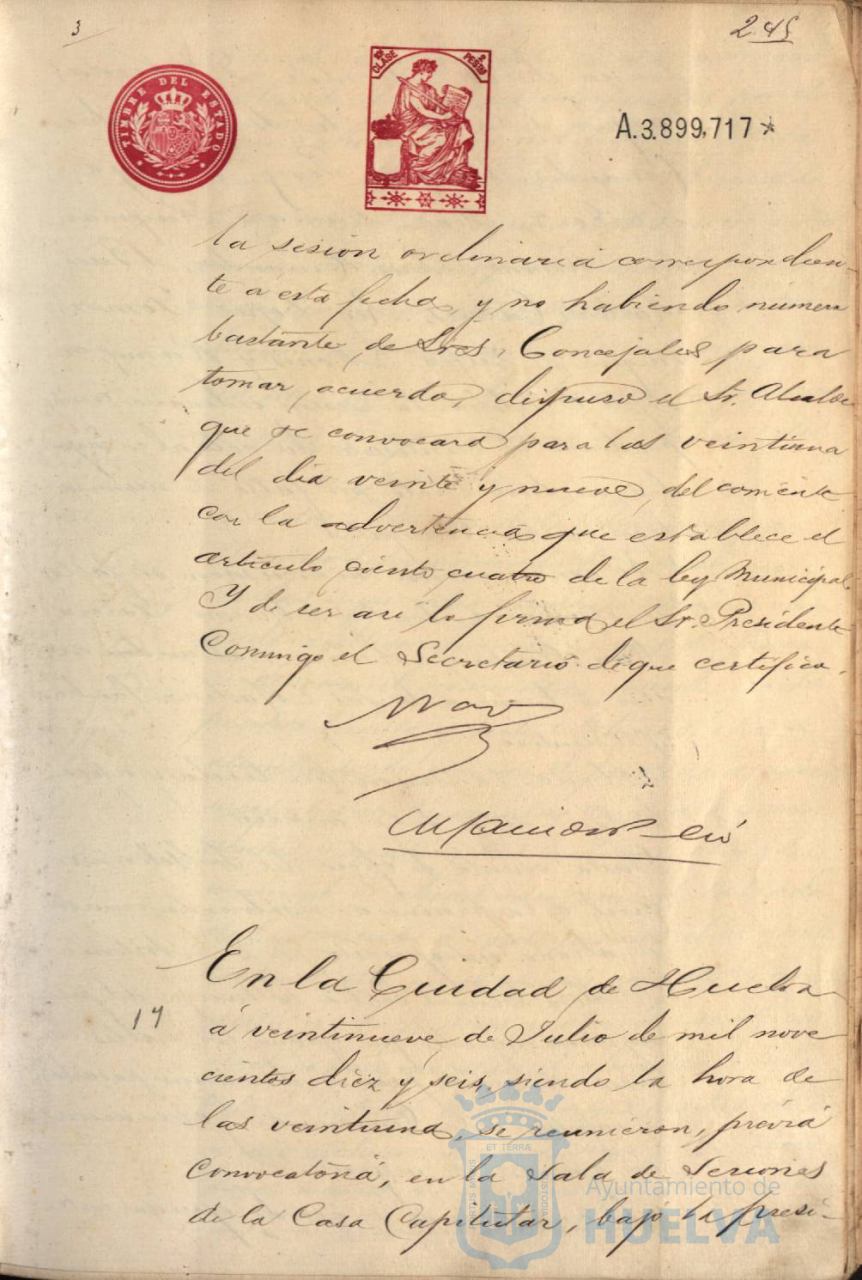 3
245
TIMBRE DEL ESTADO
CLASE
2 PESETAS
A.3.899,717*
la sesión ordinaria correspondien-
te a esta fecha, y no habiendo número
bastante de Sres. Concejales para
tomar acuerdo, dispuso el Sr. Alcalde
que se convocara para las veintiuna
del dia veinte y nueve del corriente
con la advertencia que establece el
articulo ciento cuatro de la ley Municipal
Y de ser asi lo firma el Sr. Presidente
Conmigo el Secretario de que certifico.
En la Ciudad de Huelva
17
á veintinueve de Julio de mil nove
cientos diez y seis, siendo la hora de
las veintiuna, se reunieron, prévia
convocatoria, en la Sala de Sesiones
de la Casa Capitular, bajo la presi-
ET TERRÆ
Ayuntamiento de
HUELVA